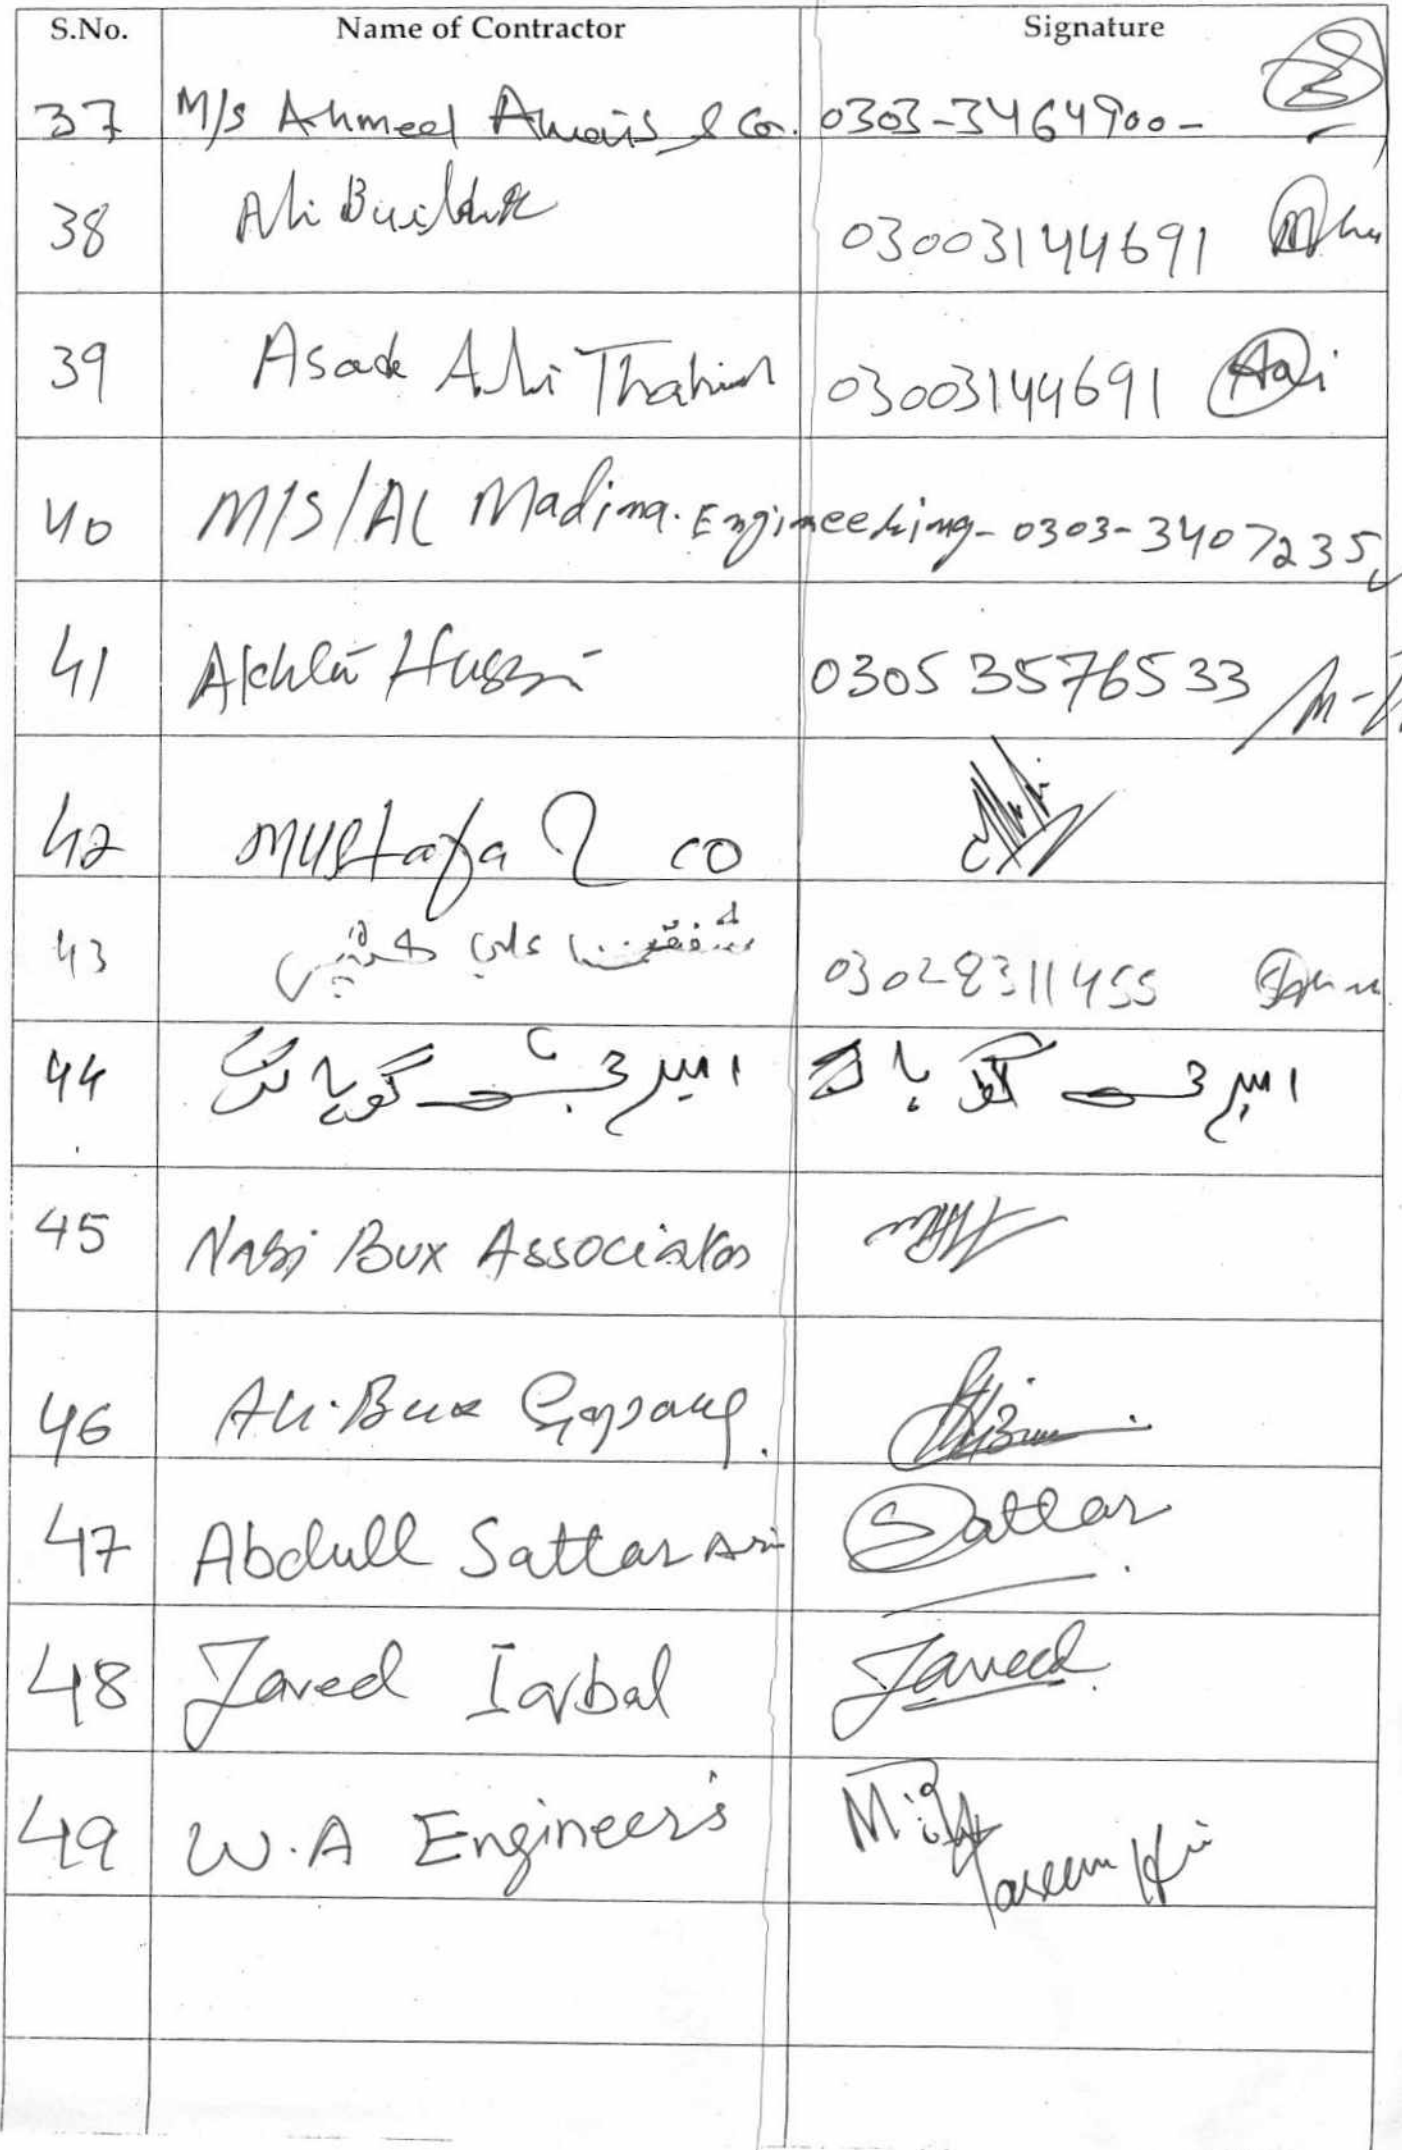 S.No. Name of Contractor Signature
37 M/s Ahmed Awais & Co. 0303-3464900-
38 Ali Builder 03003144691
39 Asad Ali Thahim 03003144691 Ali
40 M/S/AL Madina. Engineering - 0303-3407235
41 Hussain 0305 3576533
42 Mustafa & co
43 شفقت علي 03028311455
44 امير بخش گوپانگ امير بخش گوپانگ
45 Nabi Bux Associates
46 Ali Bux Gopang.
47 Abdull Sattar Sattar
48 Javed Iqbal Javeed
49 W.A Engineer's